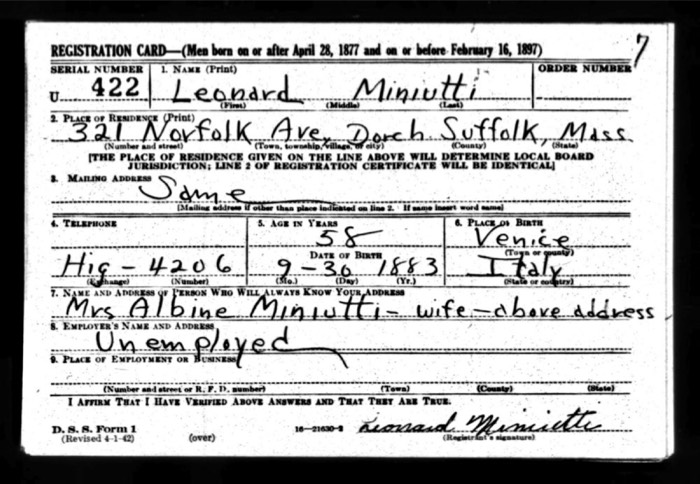 7
REGISTRATION CARD—(Men born on or after April 28, 1877 and on or before February 16, 1897)
SERIAL NUMBER 1. NAME (Print) ORDER NUMBER
U 422 Leonard Miniutti
(First) (Middle) (Last)
2. PLACE OF RESIDENCE (Print)
321 Norfolk Ave, Dorch. Suffolk, Mass
(Number and street) (Town, township, village, or city) (County) (State)
[THE PLACE OF RESIDENCE GIVEN ON THE LINE ABOVE WILL DETERMINE LOCAL BOARD
JURISDICTION; LINE 2 OF REGISTRATION CERTIFICATE WILL BE IDENTICAL]
3. MAILING ADDRESS
Same
[Mailing address if other than place indicated on line 2. If same insert word same]
4. TELEPHONE 5. AGE IN YEARS 6. PLACE OF BIRTH
58 Venice
DATE OF BIRTH (Town or county)
Hig - 4206 9-30 1883 Italy
(Exchange) (Number) (Mo.) (Day) (Yr.) (State or country)
7. NAME AND ADDRESS OF PERSON WHO WILL ALWAYS KNOW YOUR ADDRESS
Mrs Albine Miniutti - wife - above address
8. EMPLOYER'S NAME AND ADDRESS
Unemployed
9. PLACE OF EMPLOYMENT OR BUSINESS
(Number and street or R. F. D. number) (Town) (County) (State)
I AFFIRM THAT I HAVE VERIFIED ABOVE ANSWERS AND THAT THEY ARE TRUE.
D. S. S. Form 1
(Revised 4-1-42) (over) 16—21630-2 Leonard Miniutti
(Registrant's signature)